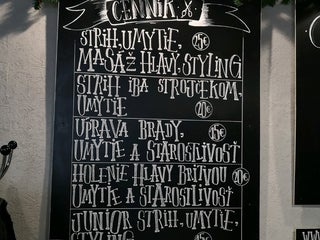 CENNÍK
STRIH, UMYTIE, 25€
MASÁŽ HLAVY, STYLING
STRIH IBA STROJČEKOM,
UMYTIE 20€
ÚPRAVA BRADY, 15€
UMYTIE A STAROSTLIVOSŤ
HOLENIE HLAVY BRITVOU 20€
UMYTIE A STAROSTLIVOSŤ
JUNIOR STRIH, UMYTIE,
STYLING 15€